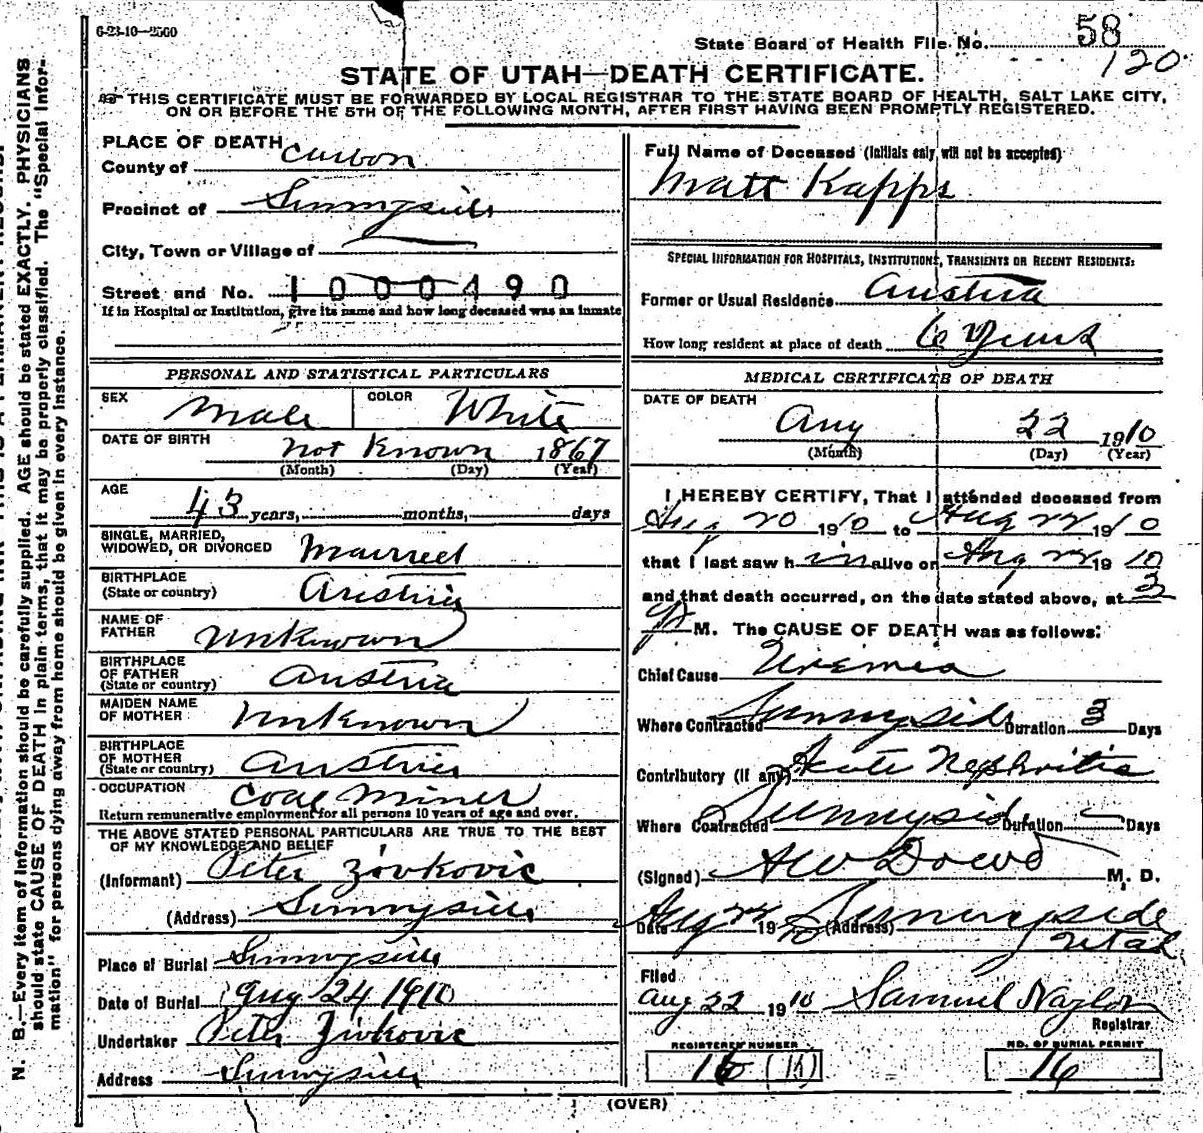 6-23-10—2500
State Board of Health File No. 58
120
STATE OF UTAH—DEATH CERTIFICATE.
THIS CERTIFICATE MUST BE FORWARDED BY LOCAL REGISTRAR TO THE STATE BOARD OF HEALTH, SALT LAKE CITY,
ON OR BEFORE THE 5TH OF THE FOLLOWING MONTH, AFTER FIRST HAVING BEEN PROMPTLY REGISTERED.
PLACE OF DEATH
County of Carbon
Precinct of Sunnyside
City, Town or Village of
Street and No. 1000490
If in Hospital or Institution, give its name and how long deceased was an inmate
PERSONAL AND STATISTICAL PARTICULARS
SEX Male COLOR White
DATE OF BIRTH not Known 1867
(Month) (Day) (Year)
AGE 43 years, months, days
SINGLE, MARRIED,
WIDOWED, OR DIVORCED Married
BIRTHPLACE
(State or country) Austria
NAME OF
FATHER Unknown
BIRTHPLACE
OF FATHER
(State or country) Austria
MAIDEN NAME
OF MOTHER Unknown
BIRTHPLACE
OF MOTHER
(State or country) Austria
OCCUPATION Coal Miner
Return remunerative employment for all persons 10 years of age and over.
THE ABOVE STATED PERSONAL PARTICULARS ARE TRUE TO THE BEST
OF MY KNOWLEDGE AND BELIEF
(Informant) Peter Zivkovic
(Address) Sunnyside
Place of Burial Sunnyside
Date of Burial Aug 24 1910
Undertaker Peter Zivkovic
Address Sunnyside
Full Name of Deceased (Initials only will not be accepted)
Matt Kapps
SPECIAL INFORMATION FOR HOSPITALS, INSTITUTIONS, TRANSIENTS OR RECENT RESIDENTS:
Former or Usual Residence Austria
How long resident at place of death 6 Years
MEDICAL CERTIFICATE OF DEATH
DATE OF DEATH
Aug 22 1910
(Month) (Day) (Year)
I HEREBY CERTIFY, That I attended deceased from
Aug 20 1910 to Aug 22 1910
that I last saw him alive on Aug 22 1910
and that death occurred, on the date stated above, at 3
P M. The CAUSE OF DEATH was as follows:
Chief Cause Uremia
Where Contracted Sunnyside Duration 3 Days
Contributory (If any) Acute Nephritis
Where Contracted Sunnyside Duration Days
(Signed) A W Dowd M. D.
Date Aug 22 1910 (Address) Sunnyside
Utah
Filed
Aug 22 1910 Samuel Naylor
Registrar
REGISTERED NUMBER NO. OF BURIAL PERMIT
16 (16) 16
(OVER)
N. B.—Every item of information should be carefully supplied. AGE should be stated EXACTLY. PHYSICIANS
should state CAUSE OF DEATH in plain terms, that it may be properly classified. The "Special Infor-
mation" for persons dying away from home should be given in every instance.